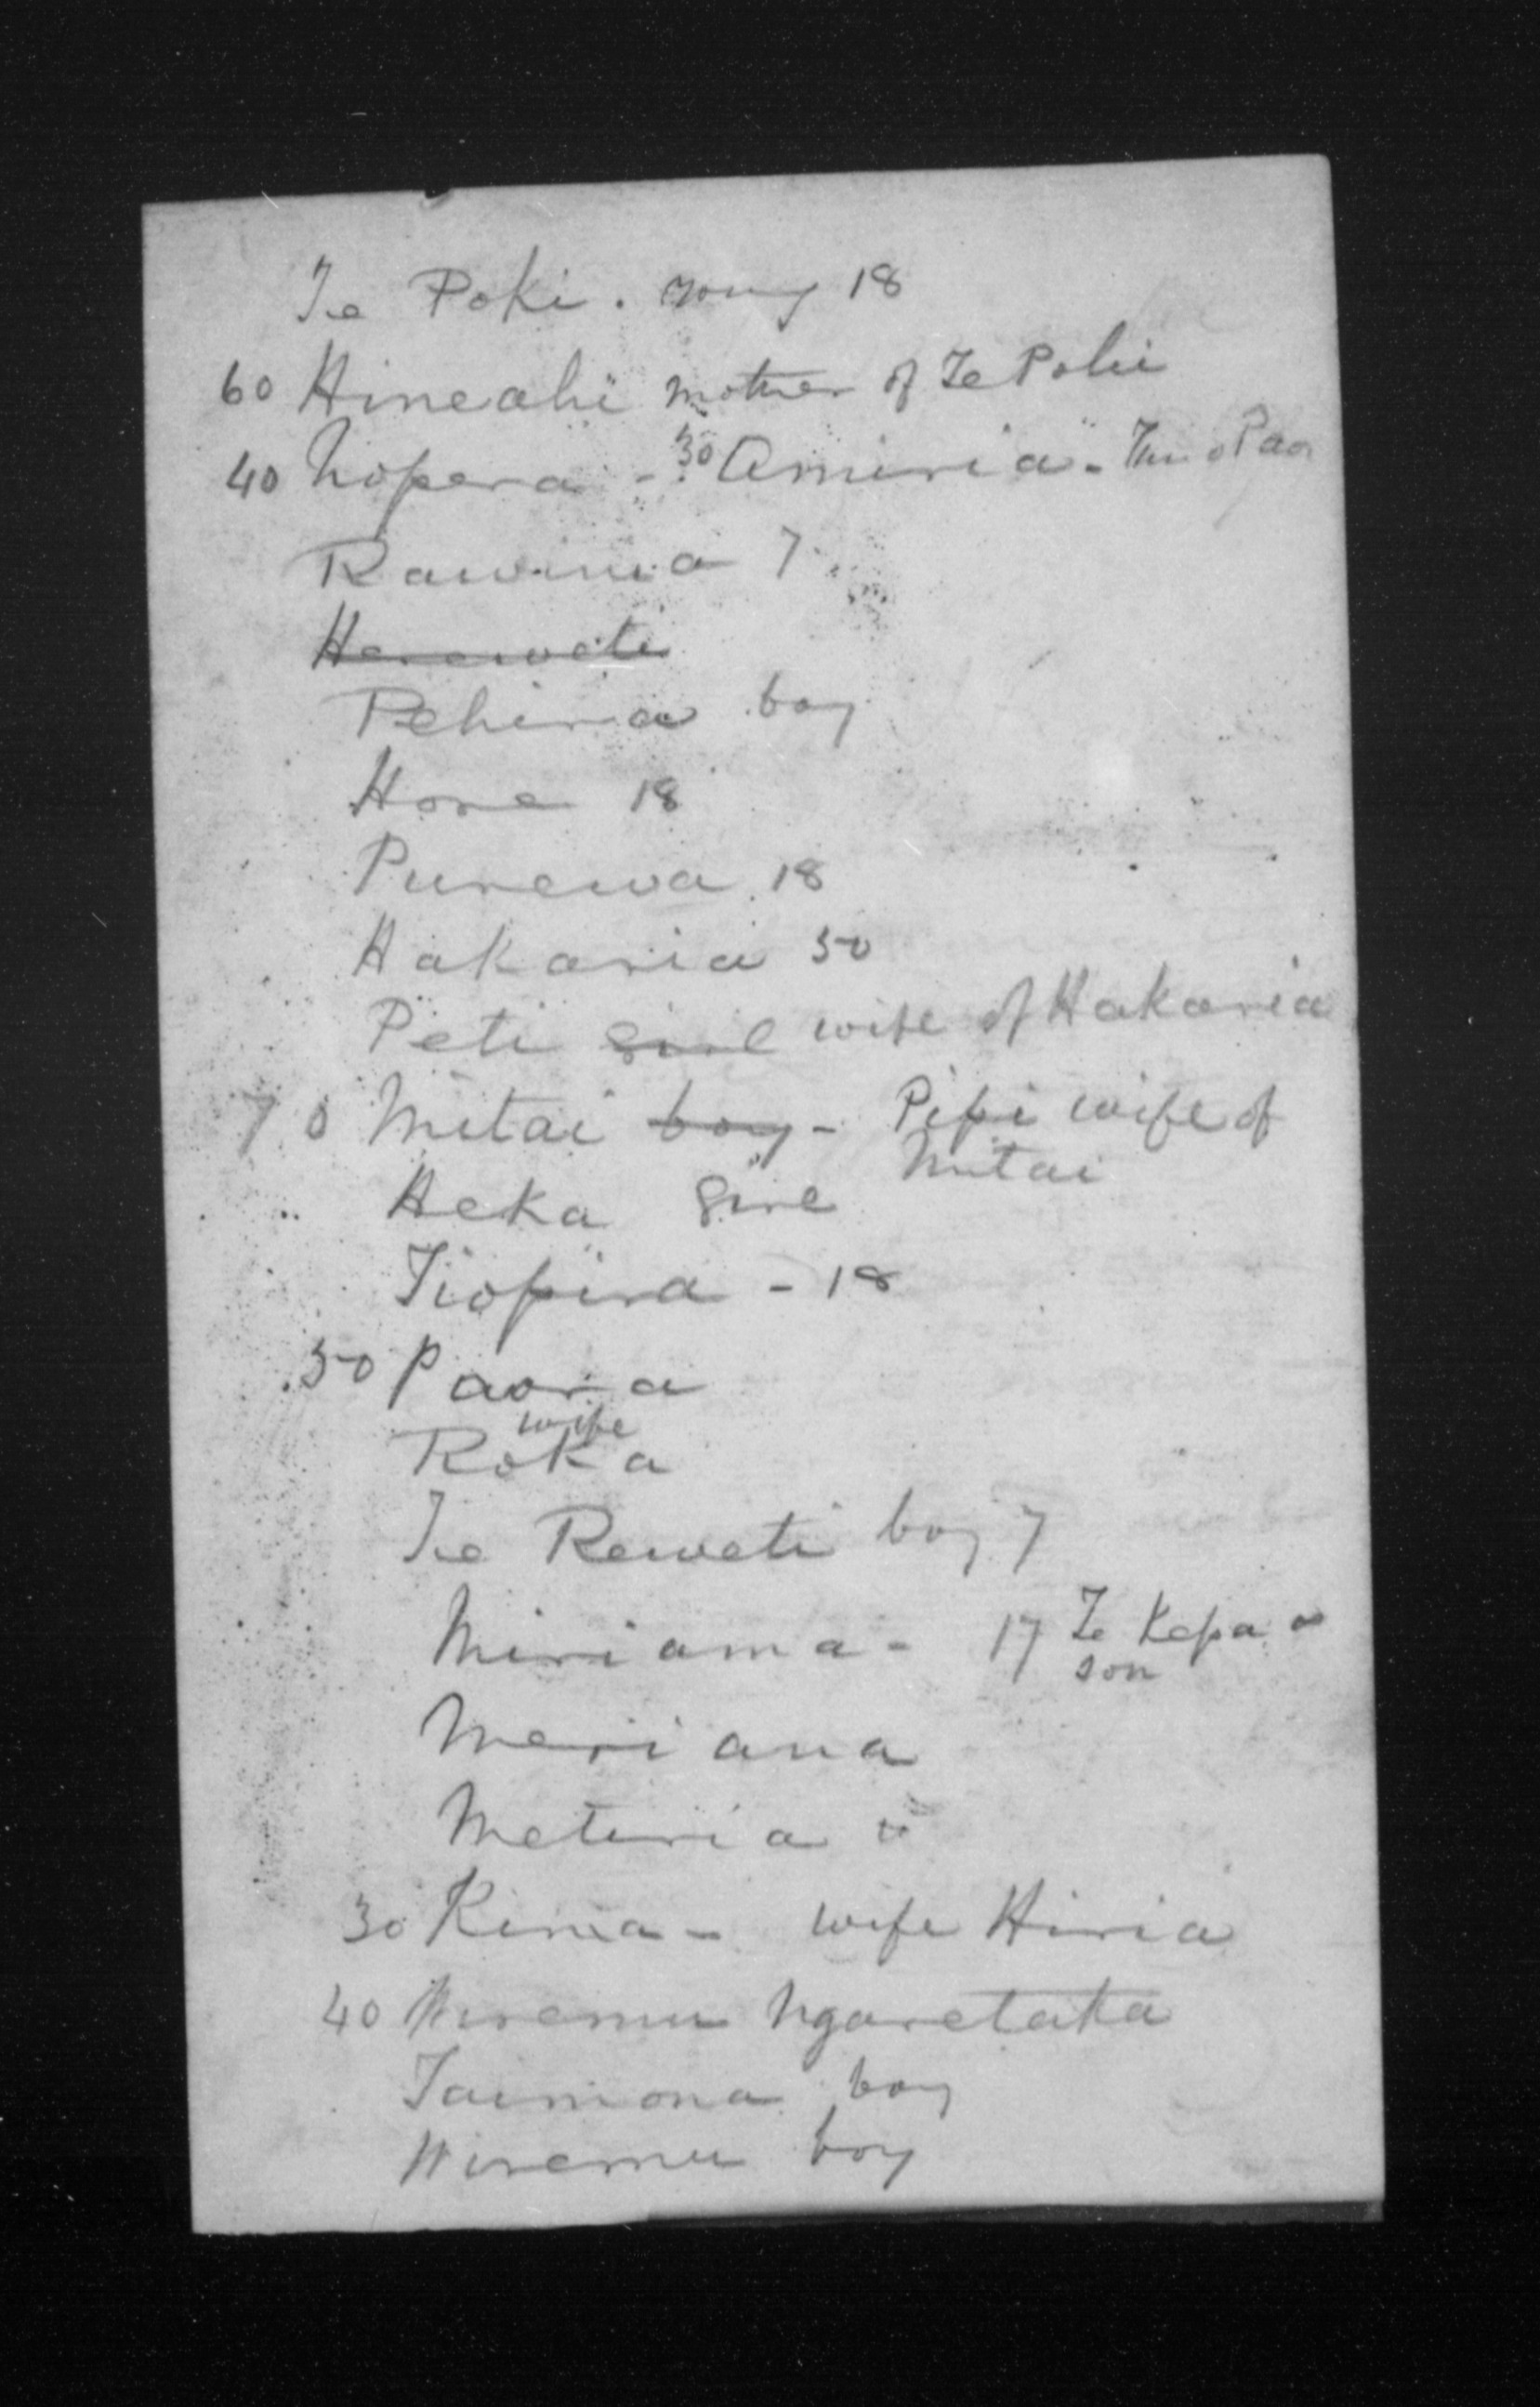 Te Poki. young 18
60 Hineahi mother of Te Poki
40 Nopera - 30 Amiria -
Rawinia 7
Harawete
Pehira boy
Hone 18
Purewa 18
Hakaria 50
Peti girl wife of Hakaria
70 Mitai boy - Pipi wife of
Mitai
Heka girl
Tiopira - 18
50 Paora
wife
Roka
Te Reweti boy 7
Miriama - 17 Te Kepa
son
Meriana
Metiria
30 wife Hiria
40 Wiremu Ngaretaka
Taimona boy
Wiremu boy